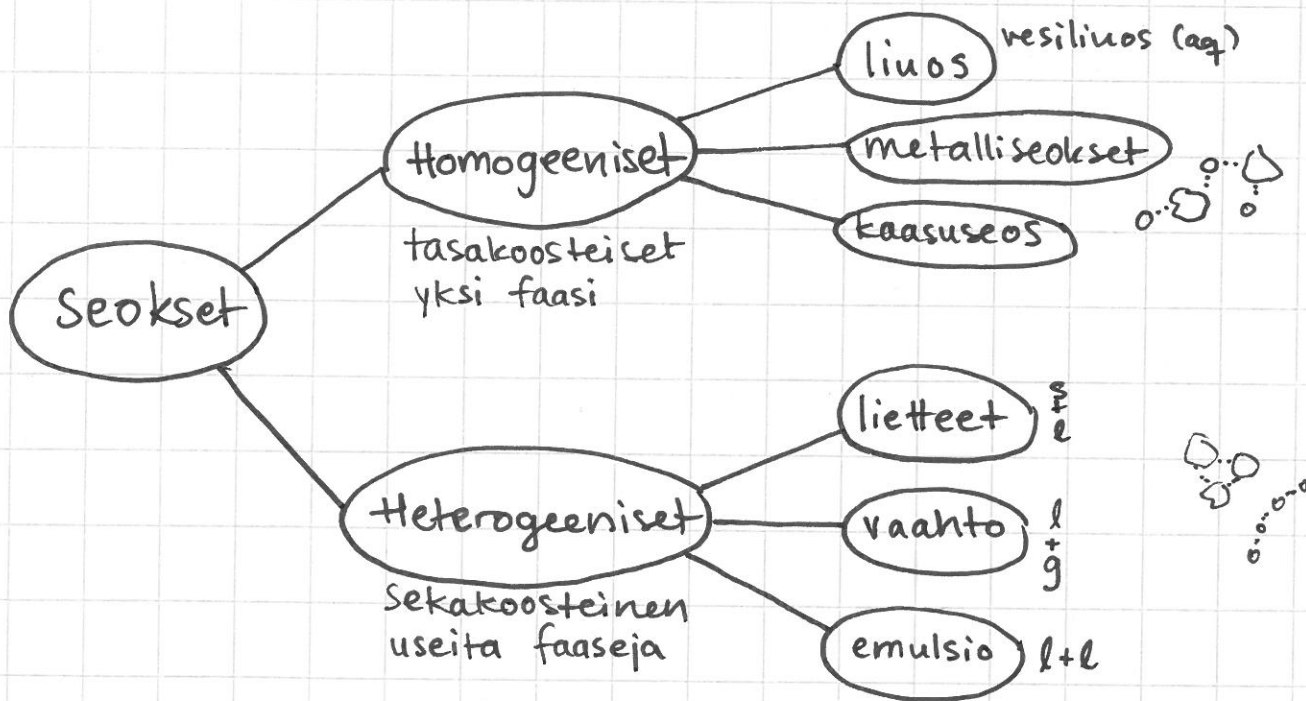 Seokset
Homogeeniset
tasakoosteiset
yksi faasi
liuos
vesiliuos (aq)
metalliseokset
kaasuseos
Heterogeeniset
sekakoosteinen
useita faaseja
lietteet
s
+
l
vaahto
l
+
g
emulsio l+l